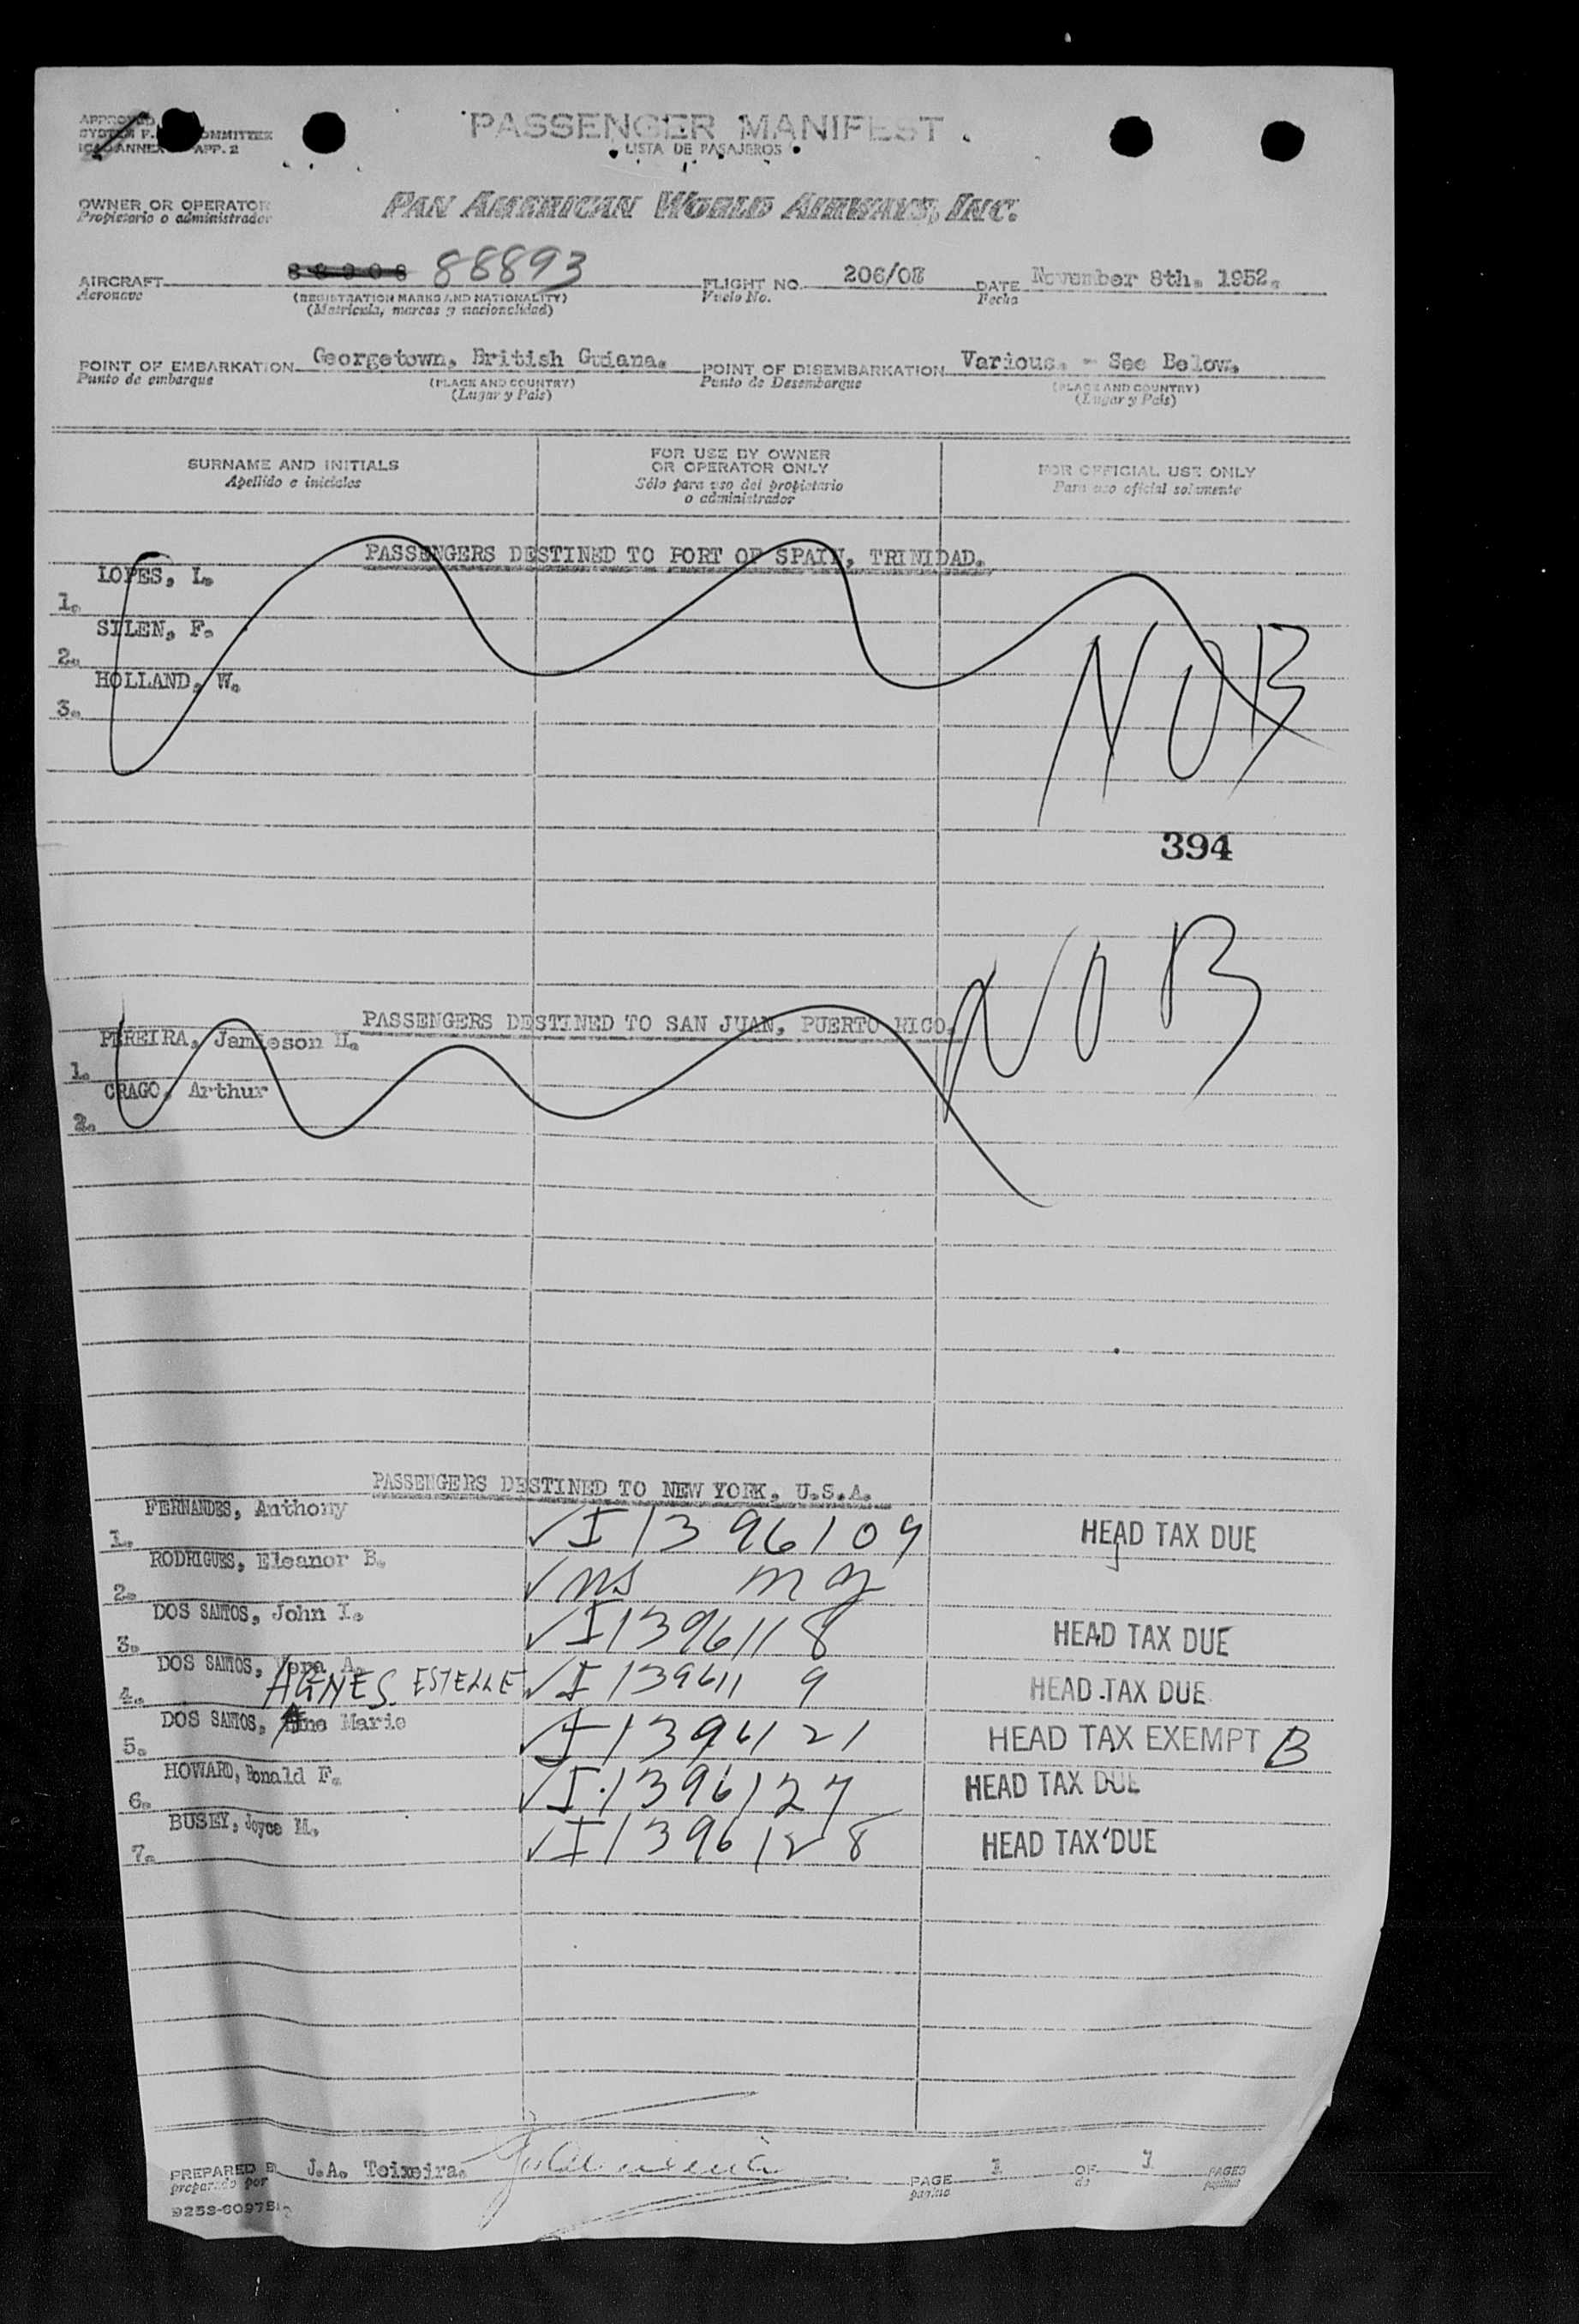 APPROVED
SYSTEM F. COMMITTEE
ICAO ANNEX APP. 2
PASSENGER MANIFEST
LISTA DE PASAJEROS
OWNER OR OPERATOR
Propietario o administrador
PAN AMERICAN WORLD AIRWAYS, INC.
AIRCRAFT 88908 88893 FLIGHT NO. 206/08 DATE November 8th. 1952.
Aeronave (REGISTRATION MARKS AND NATIONALITY) Vuelo No. Fecha
(Matrícula, marcas y nacionalidad)
POINT OF EMBARKATION Georgetown, British Guiana. POINT OF DISEMBARKATION Various. - See Below.
Punto de embarque (PLACE AND COUNTRY) Punto de Desembarque (PLACE AND COUNTRY)
(Lugar y País) (Lugar y País)
SURNAME AND INITIALS FOR USE BY OWNER OR OPERATOR ONLY FOR OFFICIAL USE ONLY
Apellido e iniciales Sólo para uso del propietario o administrador Para uso oficial solamente
PASSENGERS DESTINED TO PORT OF SPAIN, TRINIDAD.
1. LOPES, L.
2. SILEN, F.
3. HOLLAND, W.
NOB
394
NOB
PASSENGERS DESTINED TO SAN JUAN, PUERTO RICO.
1. PEREIRA, Jamieson H.
2. CRAGO, Arthur
PASSENGERS DESTINED TO NEW YORK, U.S.A.
1. FERNANDES, Anthony ✓ I1396109 HEAD TAX DUE
2. RODRIGUES, Eleanor B. ✓ ns
3. DOS SANTOS, John I. ✓ I1396118 HEAD TAX DUE
4. DOS SANTOS, Vera A. AGNES ESTELLE ✓ I1396119 HEAD TAX DUE
5. DOS SANTOS, Ane Marie ✓ I1396121 HEAD TAX EXEMPT B
6. HOWARD, Ronald F. ✓ I1396127 HEAD TAX DUE
7. BUSEY, Joyce M. ✓ I1396128 HEAD TAX DUE
PREPARED BY J.A. Teixeira. PAGE 1 OF 1 PAGES
preparado por pagina de paginas